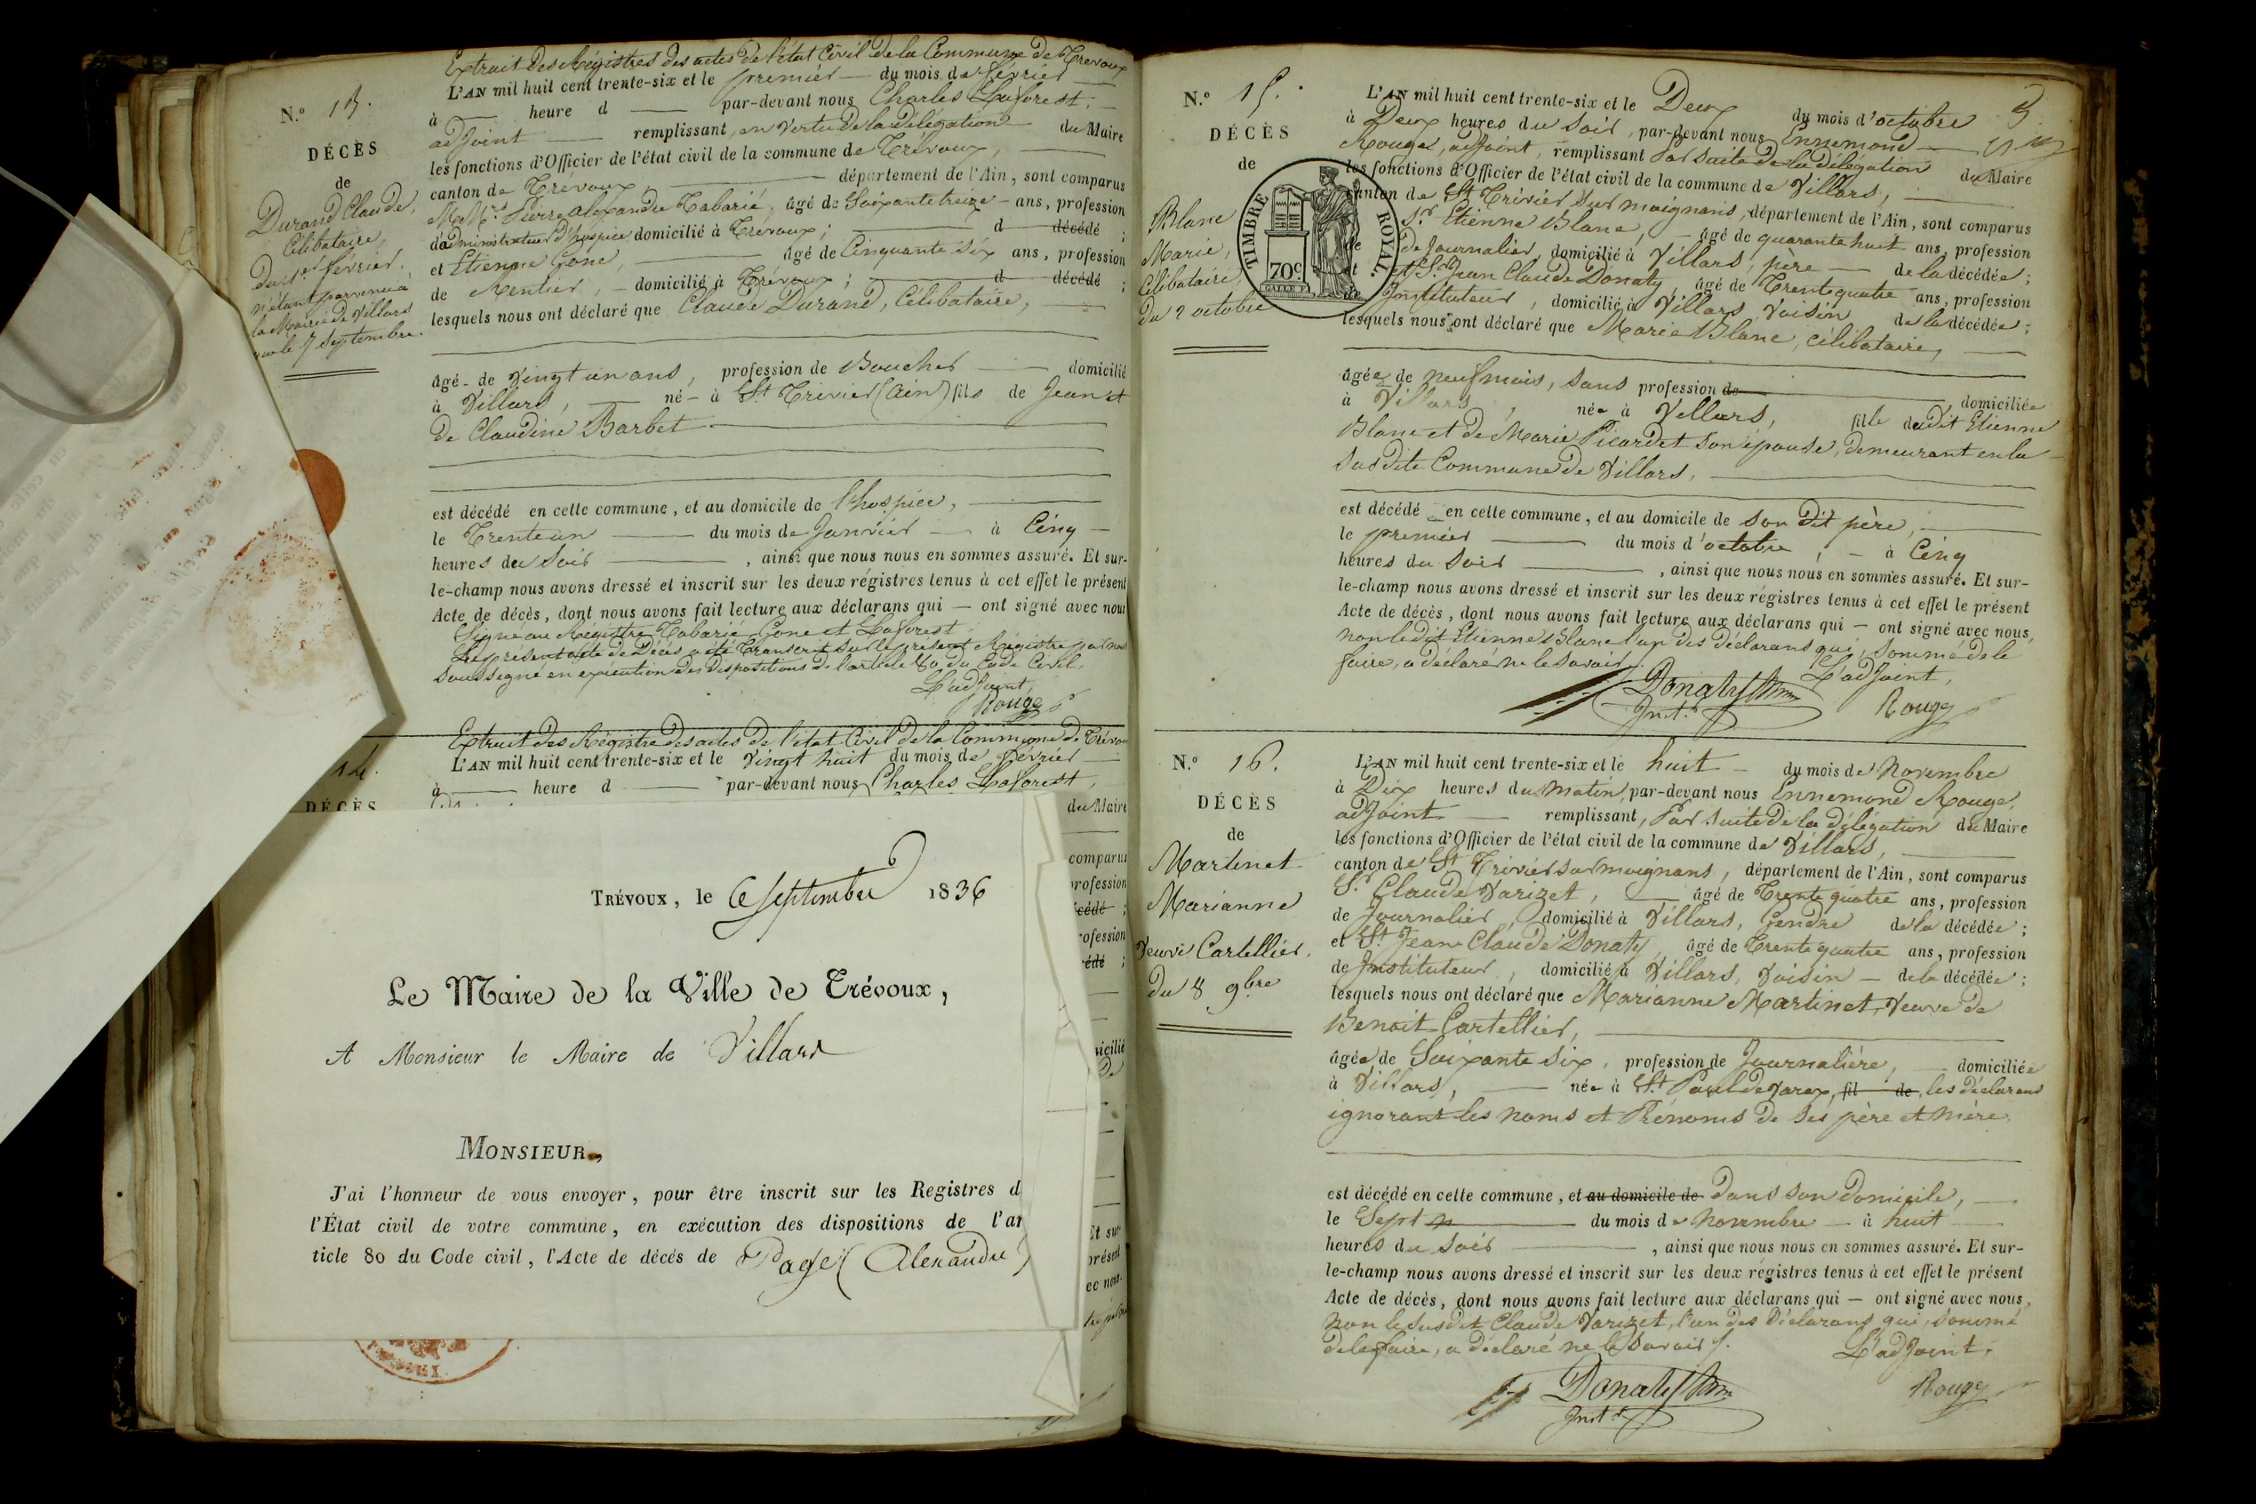 Extrait des Régistres des actes de l'état Civil de la Commune de Trévoux
N.º 13.
L'AN mil huit cent trente-six et le premier du mois de février
à heure d par-devant nous Charles Laforest,
adjoint remplissant, en vertu de la délégation du Maire
DÉCÈS
les fonctions d'Officier de l'état civil de la commune de Trévoux,
de
canton de Trévoux, département de l'Ain, sont comparus
Durand Claude,
M.rs Pierre alexandre Tabarié, âgé de Soixante treize ans, profession
Célibataire,
d'administrateur d'hospice domicilié à Trévoux; d décédé ;
du 1.er février.
et Etienne Cone, âgé de Cinquante six ans, profession
n'étant parvenu à
de Rentier, domicilié à Trévoux; d décédé ;
la Mairie de Villars
lesquels nous ont déclaré que Claude Durand, Célibataire,
que le 7 Septembre.
âgé de Vingt un ans, profession de Boucher domicilié
à Villars, né à St Trivier (Ain) fils de Jean et
de Claudine Barbet
est décédé en cette commune, et au domicile de l'hospice,
le Trente un du mois de Janvier à Cinq
heures du Soir , ainsi que nous nous en sommes assuré. Et sur-
le-champ nous avons dressé et inscrit sur les deux régistres tenus à cet effet le présent
Acte de décès, dont nous avons fait lecture aux déclarans qui — ont signé avec nous
Signé au Régistre Tabarié, Cone et Laforest.
Le présent acte de Décès a été Transcrit sur le présent Régistre par nous
soussigné en exécution des Dispositions de l'article 80, du Code Civil.
L'adjoint,
Rouge
Extrait des Régistre des actes de l'état Civil de la Commune de Trévou
14.
L'AN mil huit cent trente-six et le Vingt huit du mois de février
à heure d par-devant nous Charles Laforest,
DÉCÈS
du Maire
comparus
profession
cédé ;
rofession
cédé ;
micilié
de
Et sur-
présent
ec nous
TRÉVOUX, le 6 septembre 1836
Le Maire de la Ville de Trévoux,
A Monsieur le Maire de Villars
MONSIEUR,
J'ai l'honneur de vous envoyer, pour être inscrit sur les Registres d
l'État civil de votre commune, en exécution des dispositions de l'ar
ticle 80 du Code civil, l'Acte de décés de Page (Alexandre)
N.º 15.
L'AN mil huit cent trente-six et le Deux du mois d'octobre
à Deux heures du soir, par-devant nous Ennemond
DÉCÈS
Rouge, adjoint, remplissant Par suite de la délégation du Maire
de
les fonctions d'Officier de l'état civil de la commune de Villars,
canton de St Trivier sur moignans, département de l'Ain, sont comparus
Blanc
Sr Etienne Blanc, âgé de quarante huit ans, profession
Marie,
de Journalier, domicilié à Villars, père de la décédée;
Célibataire,
et Sr Jean Claude Donaty, âgé de Trente quatre ans, profession
Instituteur, domicilié à Villars, Voisin de la décédée;
du 2 octobre
lesquels nous ont déclaré que Marie Blanc, célibataire,
TIMBRE ROYAL.
70c
âgée de neuf mois, sans profession de domiciliée
à Villars, née à Villars, fille dudit Etienne
Blanc et de Marie Picardet son épouse, demeurant en la
susdite Commune de Villars.
est décédé en cette commune, et au domicile de son dit père,
le premier du mois d'octobre, à Cinq
heures du Soir , ainsi que nous nous en sommes assuré. Et sur-
le-champ nous avons dressé et inscrit sur les deux régistres tenus à cet effet le présent
Acte de décès, dont nous avons fait lecture aux déclarans qui — ont signé avec nous,
non ledit Etienne Blanc l'un des déclarans qui, sommé de le
faire, a déclaré ne le savoir.
L'adjoint,
Donaty
Inst.r
Rouge
N.º 16.
L'AN mil huit cent trente-six et le huit du mois de Novembre
à Dix heures du matin, par-devant nous Ennemond Rouge,
DÉCÈS
adjoint remplissant, Par suite de la délégation du Maire
de
les fonctions d'Officier de l'état civil de la commune de Villars,
Martinet
canton de St Trivier sur moignans, département de l'Ain, sont comparus
Sr Claude Varizet, âgé de Trente quatre ans, profession
Marianne
de Journalier, domicilié à Villars, Gendre de la décédée;
Veuve Cartellier.
et Sr Jean Claude Donaty âgé de Trente quatre ans, profession
du 8 9bre
de Instituteur, domicilié à Villars, Voisin de la décédée;
lesquels nous ont déclaré que Marianne Martinet, Veuve de
Benoit Cartellier,
âgée de Soixante Six, profession de Journalière, domiciliée
à Villars, née à St Paul de Varax, fil de les déclarans
ignorant les noms et Prénoms de ses père et mère.
est décédé en cette commune, et au domicile de Dans son domicile,
le Sept du mois de Novembre à huit
heures du Soir , ainsi que nous nous en sommes assuré. Et sur-
le-champ nous avons dressé et inscrit sur les deux régistres tenus à cet effet le présent
Acte de décès, dont nous avons fait lecture aux déclarans qui — ont signé avec nous,
non le susdit Claude Varizet, l'un des déclarans qui, sommé
de le faire, a déclaré ne le savoir.
L'adjoint,
Donaty
Inst.r
Rouge